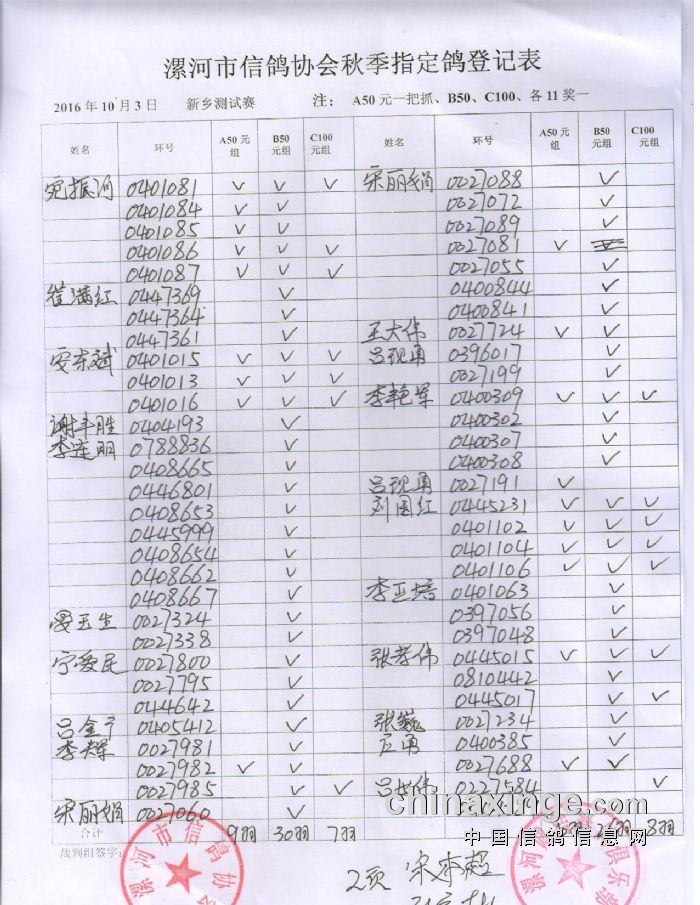 漯河市信鸽协会秋季指定鸽登记表
2016年10月3日 新乡测试赛 注： A50元一把抓、B50、C100、各11奖一
姓名 环号 A50元组 B50元组 C100元组 姓名 环号 A50元组 B50元组 C100元组
0401081 ✓ ✓ ✓ 宋丽娟 0027088 ✓
0401084 ✓ ✓ 0027072 ✓
0401085 ✓ ✓ 0027089 ✓
0401086 ✓ ✓ ✓ 0027081 ✓
0401087 ✓ ✓ ✓ 0027055 ✓
崔满红 0447369 ✓ 0400844 ✓
0447364 ✓ 0400841 ✓
0447361 ✓ 王大伟 0027724 ✓ ✓
安东斌 0401015 ✓ ✓ ✓ 吕现勇 0396017 ✓
0401013 ✓ ✓ ✓ 0027199 ✓
0401016 ✓ ✓ ✓ 李艳军 0400309 ✓ ✓ ✓
谢丰胜 0404193 ✓ 0400302 ✓
李连明 0788836 ✓ 0400307 ✓
0408665 ✓ 0400308 ✓
0446801 ✓ 吕现勇 0027191 ✓
0408653 ✓ 刘国红 0445231 ✓ ✓ ✓
0445999 ✓ 0401102 ✓ ✓ ✓
0408654 ✓ 0401104 ✓ ✓ ✓
0408662 ✓ 0401106 ✓ ✓ ✓
0408667 ✓ 李亚培 0401063 ✓
0027324 ✓ 0397056 ✓
0027338 ✓ 0397048 ✓
宁爱民 0027800 ✓ 张孝伟 0445015 ✓ ✓ ✓
0027795 ✓ 0810442 ✓
0444642 ✓ 0445017 ✓ ✓
0405412 ✓ 张巍 0027234 ✓
李辉 0027981 ✓ 0400385 ✓
0027982 ✓ ✓ 0027688 ✓ ✓
0027985 ✓ ✓ 0227584 ✓
宋丽娟 0027060 ✓
合计 9羽 30羽 7羽 8羽
裁判组签字：
2页
漯河市信鸽协
chinaxinge.com
中国信鸽信息网